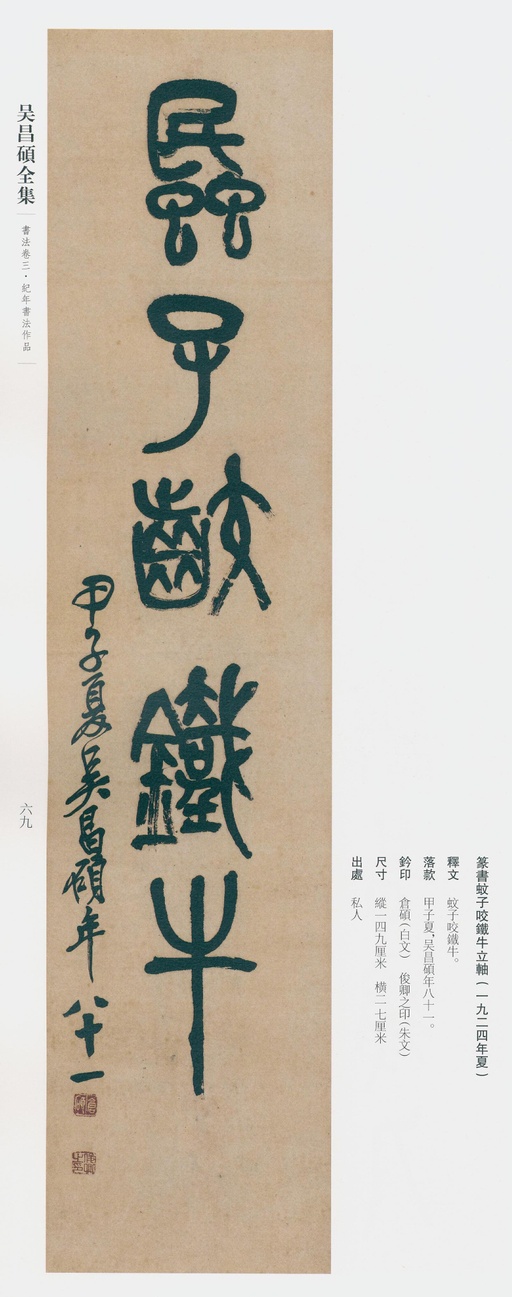 篆書蚊子咬鐵牛立軸(一九二四年夏)
釋文 蚊子咬鐵牛。
落款 甲子夏,吴昌碩年八十一。
鈐印 倉碩(白文) 俊卿之印(朱文)
尺寸 縱一四九厘米 横二七厘米
出處 私人
蟁子齩鐵牛
甲子夏吴昌碩年八十一
倉碩
俊卿之印
吴昌碩全集
書法卷三·紀年書法作品
六九